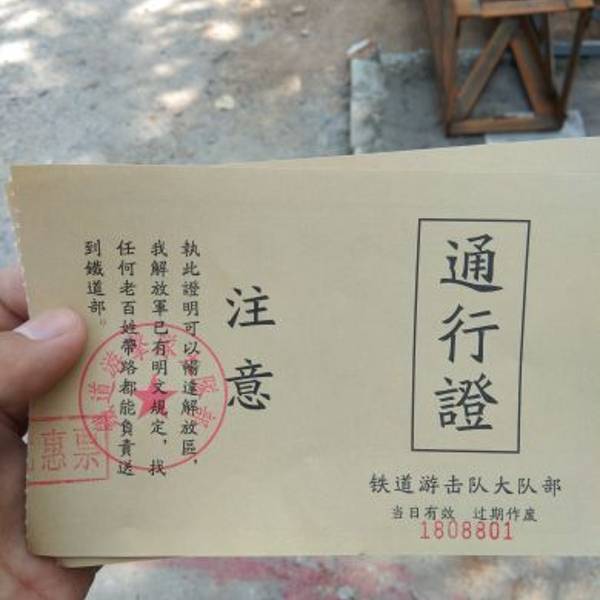 通行證
铁道游击队大队部
当日有效 过期作废
1808801
注意
執此證明可以暢逢解放區，
我解放軍已有明文規定，找
任何老百姓帶路都能負責送
到鐵道部。
惠票